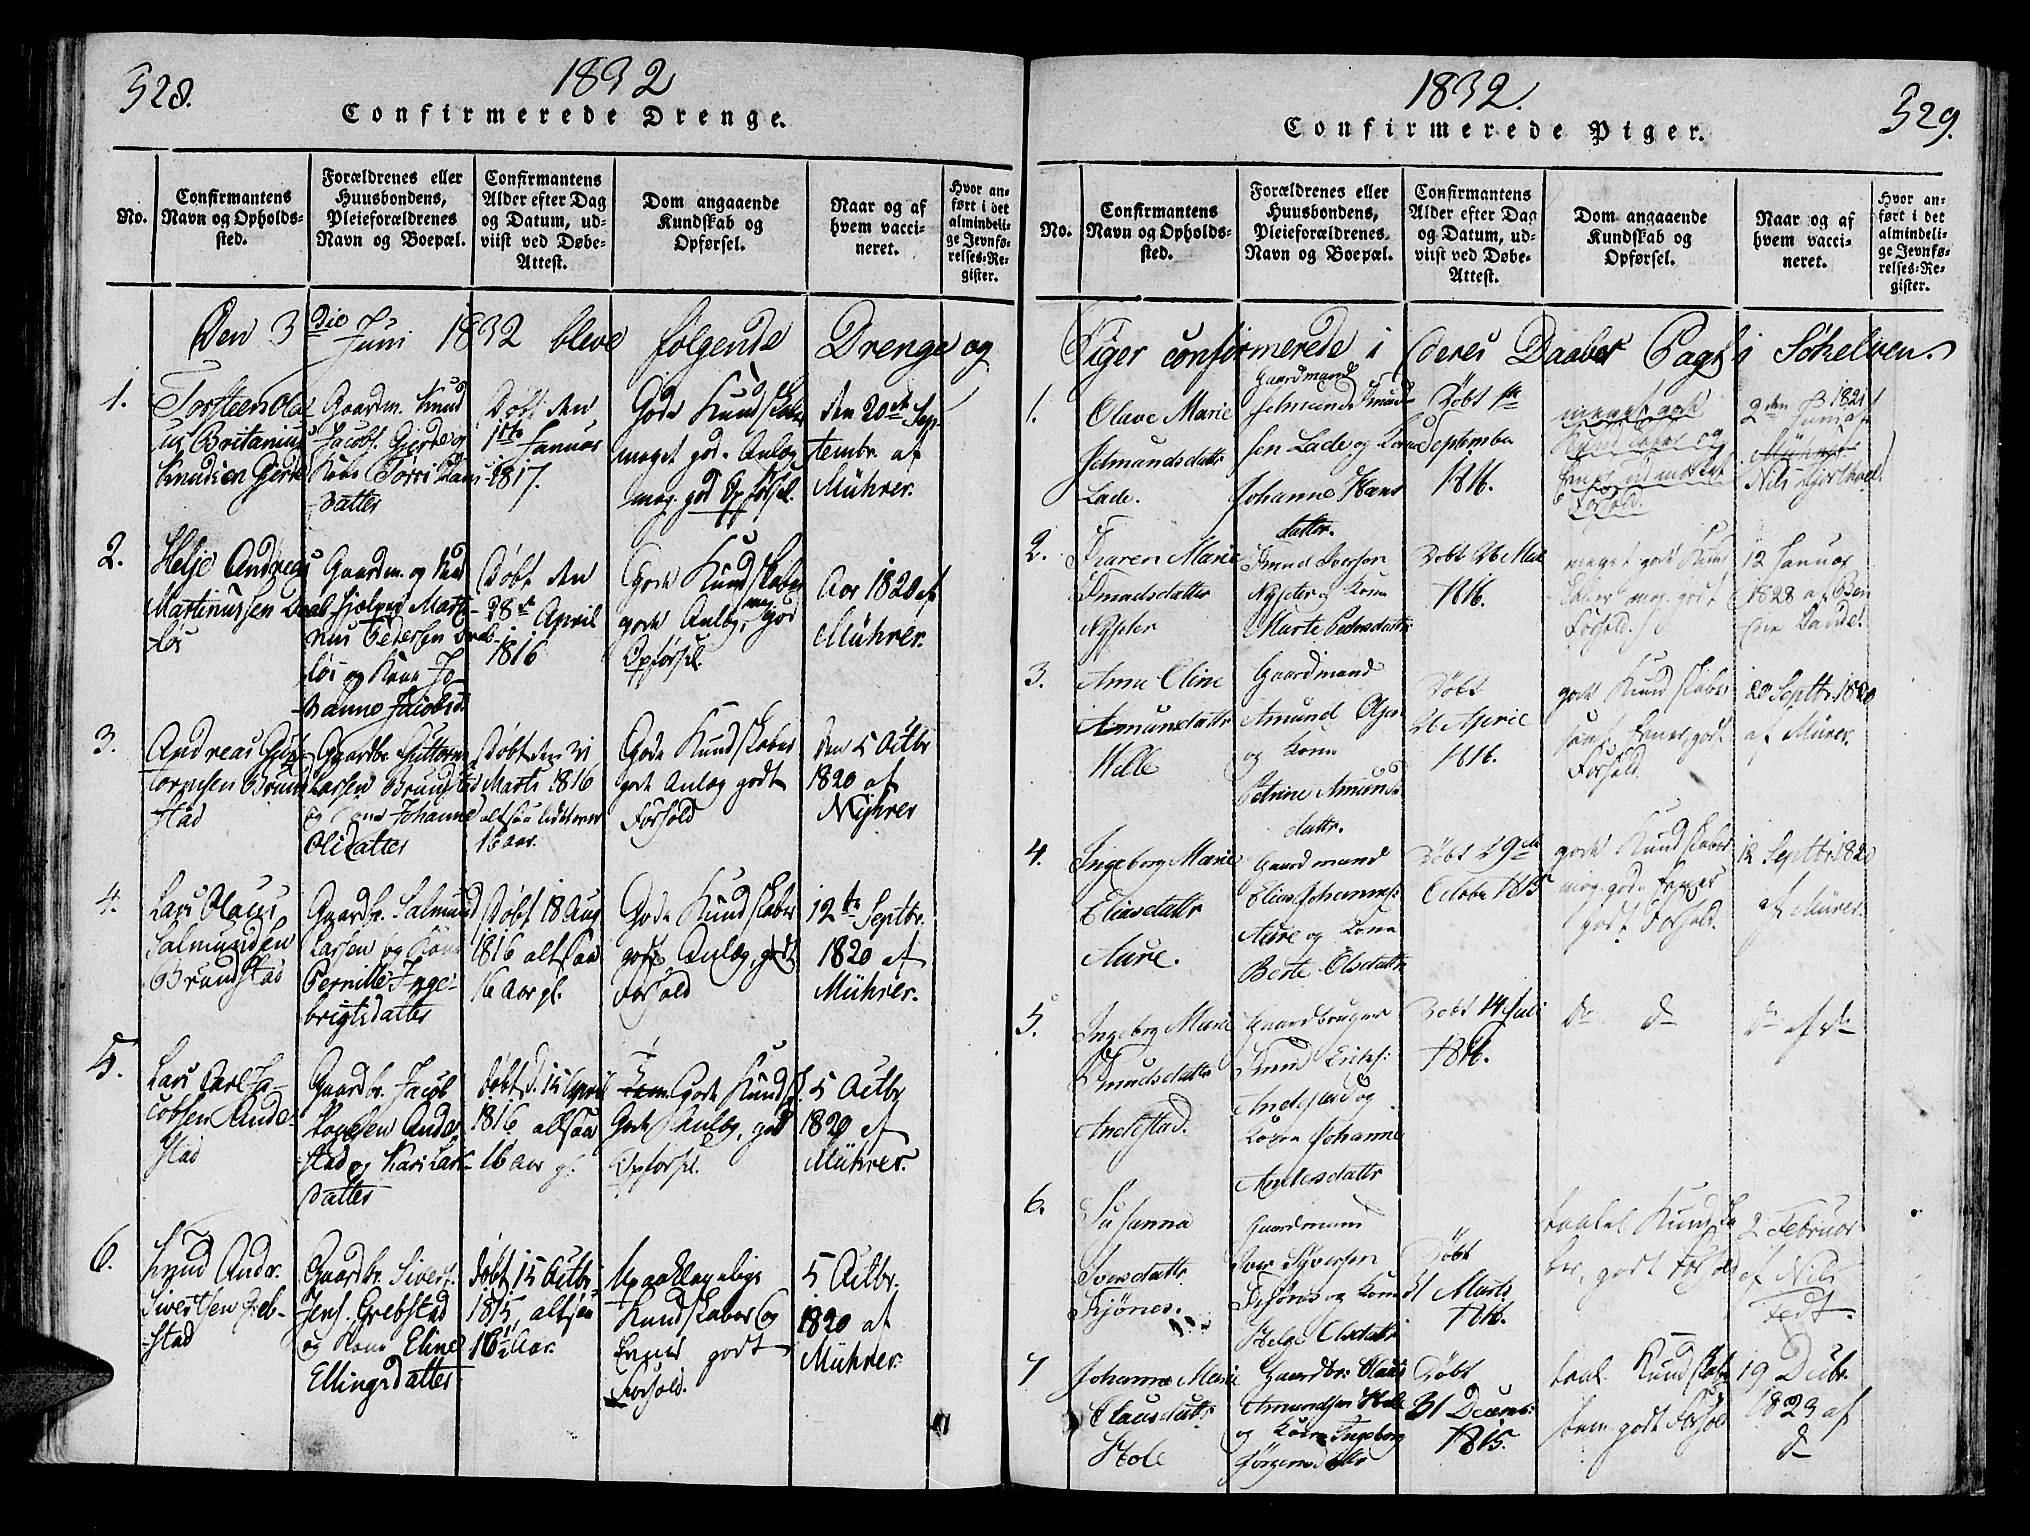 528.
1832
Confirmerede Drenge.
No.
Confirmantens
Navn og Opholds-
sted.
Forældrenes eller
Huusbondens,
Pleieforældrenes
Navn og Boepæl.
Confirmantens
Alder efter Dag
og Datum, ud-
viist ved Døbe-
Attest.
Dom angaaende
Kundskab og
Opførsel.
Naar og af
hvem vacci-
neret.
Hvor an-
ført i det
almindeli-
ge Jevnfø-
relses-Re-
gister.
Den 3die Juni 1832 bleve følgende Drenge og
1.
Torsteen Ola-
us Britanius
Knudsen Gjerde
Gaardm. Knud
Jacobs. Gjerde og
Kone
datter
Døbt den
1ste Januar
1817.
Gode Kundskaber
meget gode Anlæg
meg. god Opførsel.
den 20de Sep-
tembr. af
Mührer.
2.
Helje Andreas
Martinussen
løs
Gaardm. og
hjelper Marti-
nus Pedersen
løs og Kone Jo-
hanne Jacobsd.
Døbt den
28de April
1816
Gode Kundskaber
gode Anlæg, meg. god
Opførsel.
Aar 1820 af
Mührer.
3.
Andreas Gut-
tormsen Brund-
stad
Gaardbr. Guttorm
Larsen Brundstad
og Kone Johanne
Olsdatter
Døbt den 31
Marts 1816
altsaa
16 aar.
Gode Kundskaber
gode Anlæg godt
Forhold
den 5 Octbr
1820 af
Myhrer
4.
Lars Olaus
Salmundsen
Brundstad
Gaardbr. Salmund
Larsen og Kone
Pernille Inge-
brigtsdatter
Døbt 18 Aug
1816 altsaa
16 Aar gl.
Gode Kundskaber
gode Anlæg, godt
Forhold
12te Septbr.
1820 af
Mührer.
5.
Lars Carl Ja-
cobsen Ande-
stad
Gaardbr. Jacob
Ande-
stad og Kari Lars-
datter
døbt d. 15 April
1816 altsaa
16 Aar gl.
Gode Kundsk.
Gode Anlæg, god
Opførsel.
5 Octbr
1820 af
Mührer.
6.
Knud Andr.
Sivertsen Greb-
stad
Gaardbr. Sivert
Jens. Grebstad
og Kone Eline
Ellingsdatter
døbt 15 Octbr
1815, altsaa
16½ Aar.
Upaaklagelige
Kundskaber og
Evner godt
Forhold.
5 Octbr.
1820 af
Mührer.
1832.
529.
Confirmerede Piger.
No.
Confirmantens
Navn og Opholds-
sted.
Forældrenes eller
Huusbondens,
Pleieforældrenes
Navn og Boepæl.
Confirmantens
Alder efter Dag
og Datum, ud-
viist ved Døbe-
Attest.
Dom angaaende
Kundskab og
Opførsel.
Naar og af
hvem vacci-
neret.
Hvor an-
ført i det
almindeli-
ge Jevnfø-
relses-Re-
gister.
Piger confirmerede i deres Daabes Pagt i Søkelven.
1.
Olave Marie
Jetmundsdattr
Lade.
Gaardmand
Jetmund Knud-
sen Lade og Kone
Johanne Hans
dattr.
Døbt 1ste
September
1816.
meget gode
Kundskaber og
Forhold.
2den Juni 1821
af
Mührer
Nils
2.
Karen Marie
Knudsdatter
Nysæter
Knud Iversen
Nysæter og Kone
Marte Pedersdattr
Døbt 26 Mai
1816.
meget gode Kund-
skaber meg. godt
Forhold.
12 Januar
1828 af
3.
Anne Oline
Amundsdattr
Welle
Gaardmand
Amund
og Kone
Petrine Amunds
dattr.
Døbt
21 April
1816.
gode Kundskaber
samt Evner godt
Forhold.
20 Septbr 1820
af Mürer.
4.
Ingeborg Marie
Eliasdattr
Aure.
Gaardmand
Elias Johannes:
Aure og Kone
Berte Olsdattr
Døbt 29de
October 1815
gode Kundskaber
meg. gode Evner
godt Forhold.
12 Septbr 1820
af Mürer.
5.
Ingeborg Marie
Knudsdattr
Andestad.
Gaardbruger
Knud
Andestad og
Konen Johanne
Andersdattr
Døbt 14 Juli
1816.
do do
do af do
6.
Susanna
Iversdattr
Fjønes.
Gaardmand
Iver Syversen
Fjønes og Kone
Helge Olsdattr
Døbt
31 Marts
1816.
taalel. Kundska-
ber, godt Forhold
2 Februar
af Nils
7
Johanne Marie
Clausdattr
Hole
Gaardbr: Claus
Amundsen Hole
og Kone Ingeborg
Jørgensdattr
Døbt
31 Decemb:
1815.
taal. Kundskaber
godt Forhold
19 Decbr.
1823 af
do